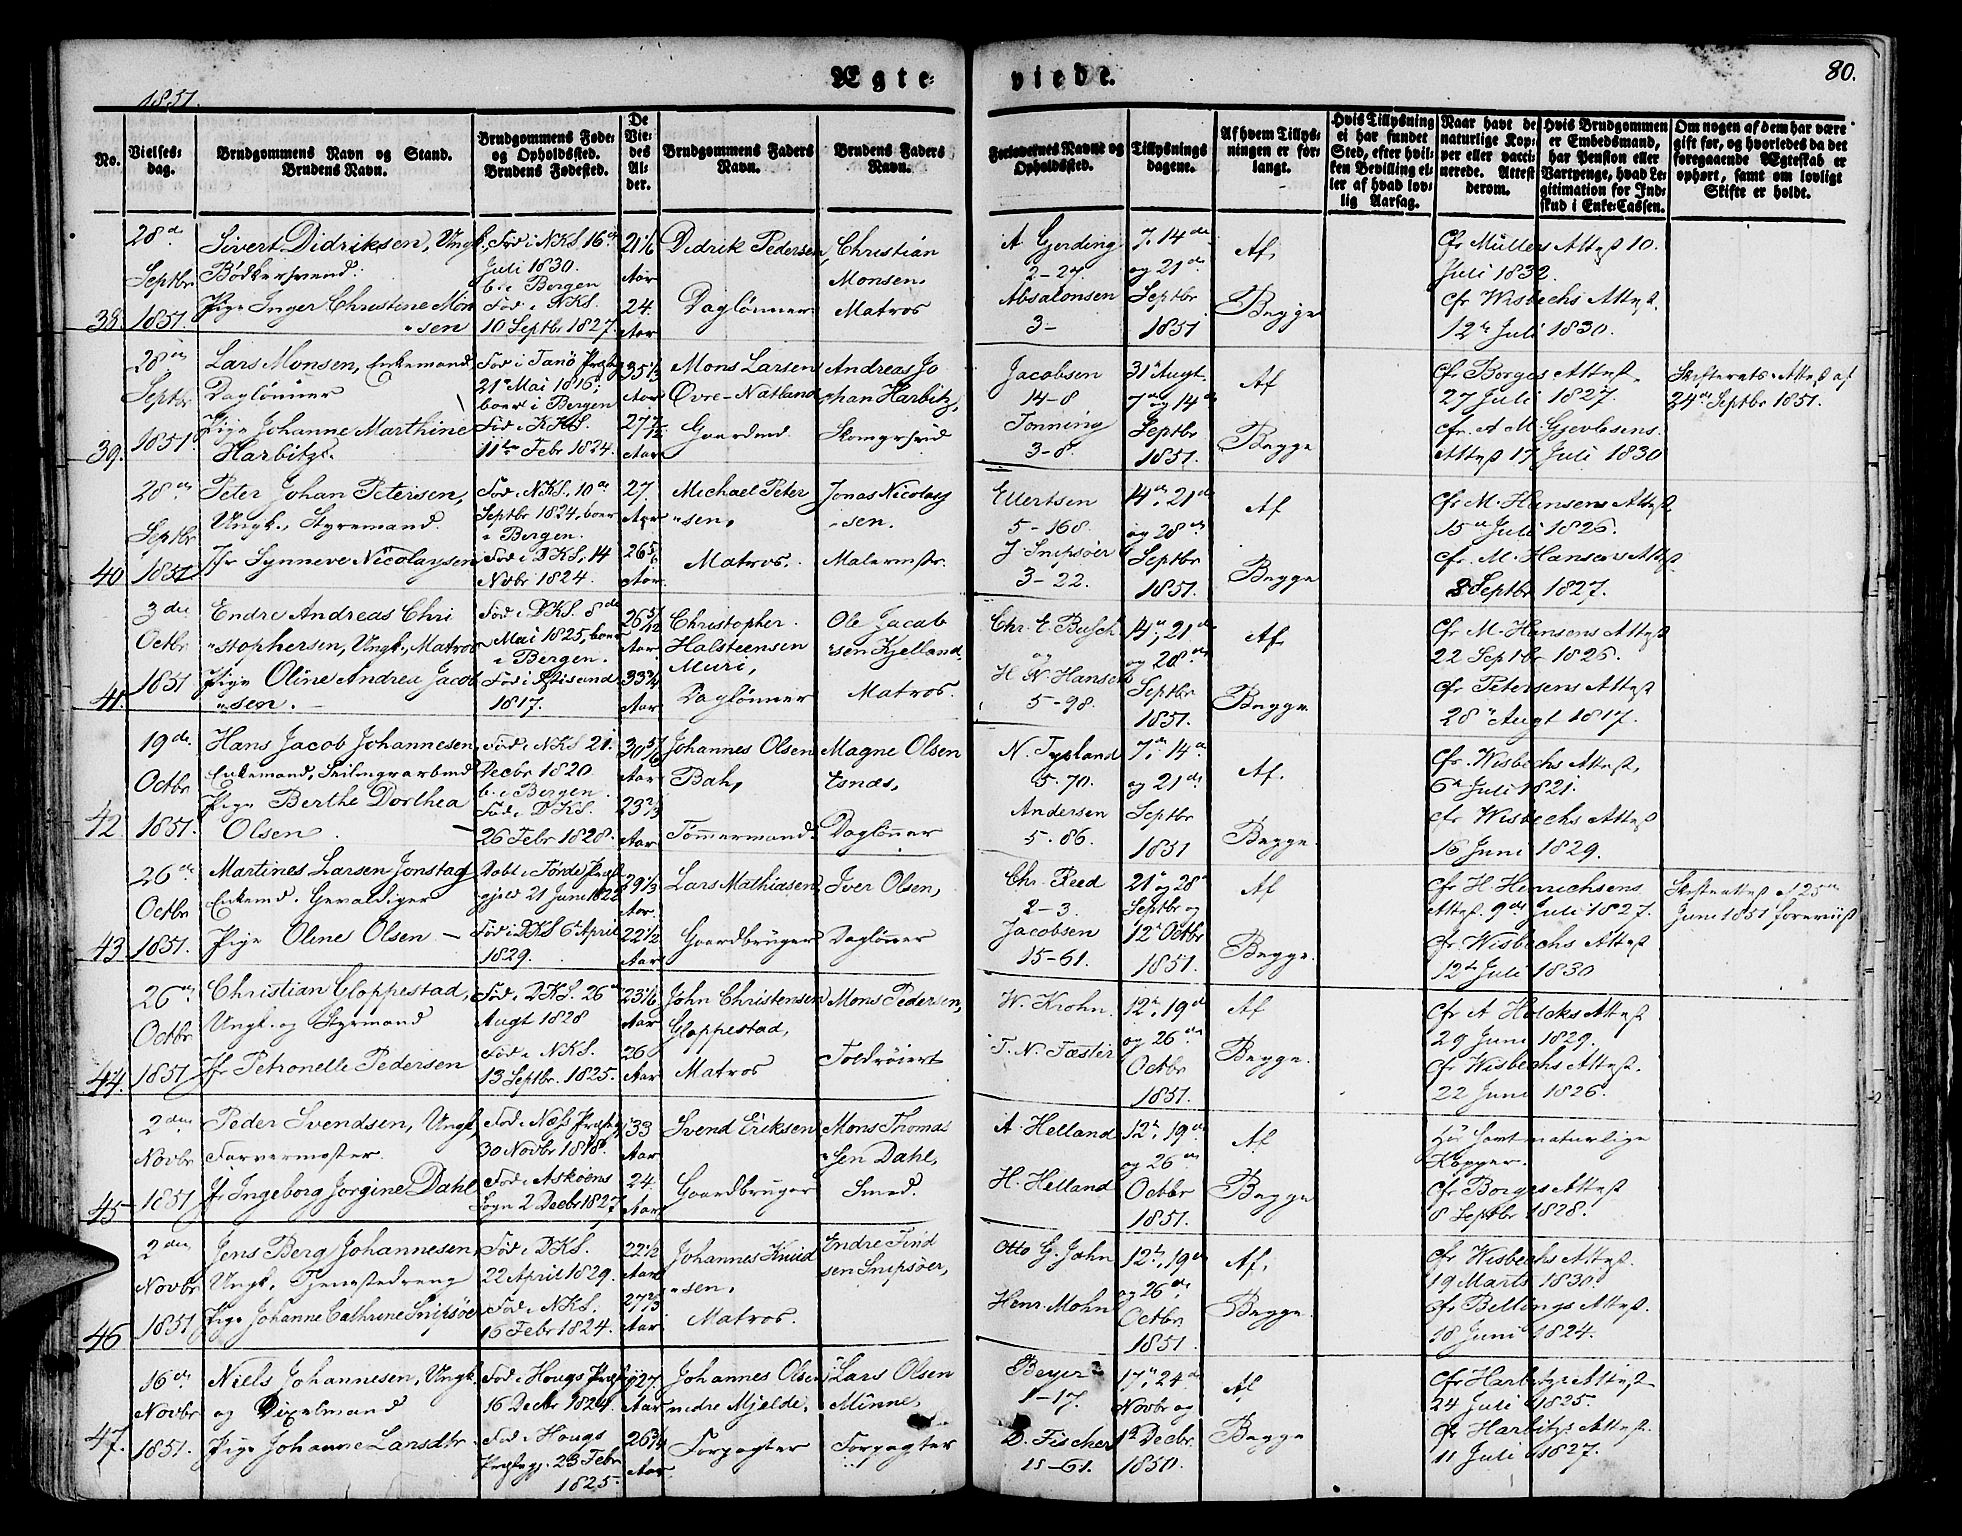 1851.
Ægte-
viede.
80.
No.
Vielses-
dag.
Brudgommens Navn og Stand.
Brudens Navn.
Brudgommens Føde-
og Opholdssted.
Brudens Fødested.
De
Vie-
des
Al-
der.
Brudgommens Faders
Navn.
Brudens Faders
Navn.
Forlovernes Navne og
Opholdssted.
Tillysnings
dagene.
Af hvem Tillys-
ningen er for-
langt.
Hvis Tillysning
ei har fundet
Sted, efter hvil-
ken Bevilling el-
ler af hvad lov-
lig Aarsag.
Naar havt de
naturlige Kop-
per eller vacci-
nerede. Attest
derom.
Hvis Brudgommen
er Embedsmand,
har Pension eller
Vartpenge, hvad Le-
gitimation for Ind-
skud i Enke-Cassen.
Om nogen af dem har være
gift før, og hvorledes da det
foregaaende Ægteskab er
ophørt, samt om lovligt
Skifte er holdt.
38.
28de
Septbr
1851.
Sivert Didriksen, Ungk.
Bødkersvend.
Pige Inger Christine Mon
"sen
Fød i NKS. 16de
Juli 1830.
b. i Bergen
Fød i NKS.
10 Septbr 1827.
21 1/6
Aar
24.
Aar
Didrik Pedersen,
Daglønner
Christian
Monsen,
Matros
A Gjerding
2-27.
Absalonsen
3-
7, 14de
og 21de
Septbr
1851
Af
Begge
Cfr Müllers Attest 10.
Juli 1832.
Cfr Wisbechs Attest
12te Juli 1830.
39.
28de
Septbr
1851.
Lars Monsen, Enkemand,
Daglønner
Pige Johanne Marthine
Harbitz.
Fød i Fanø Prstg
21de Mai 1816,
boer i Bergen
Fød i KKS.
11te Febr 1824.
35 1/3
Aar
27 7/12
Aar
Mons Larsen
Øvre-Natland
Gaardmd.
Andreas Jo
"han Harbitz,
Skomgrsvd
Jacobsen
14-8
Tonning
3-8.
31te Augt
7de og 14de
Septbr
1851.
Af
Begge
Cfr Borges Attest
27 Juli 1827.
cfr. A M. Gjevlesens
Attest 17 Juli 1830
Skifterets Attest af
24de Septbr 1851.
40
28de
Septbr
1851
Peter Johan Petersen,
Ungk., Styremand.
Jfr Synneve Nicolaysen
Fød i NKS, 10de
Septbr 1824, boer
i Bergen.
Fød i DKS, 14
Novbr 1824.
27.
Aar
26 5/6
Aar
Michael Peter
"sen,
Matros.
Jonas Nicolay
-sen.
Malermstr.
Ellertsen
5-168.
J. Snipsøer
3-22.
14de, 21de
og 28de
Septbr
1851.
Af
Begge
Cfr M. Hansens Attest
15de Juli 1826.
Cfr. M. Hansens Attest
8 Septbr 1827.
41.
3die
Octbr
1851
Endre Andreas Chri
"stophersen, Ungk., Matros
Pige Oline Andrea Jacob
"sen.
Fød i DKS. 8de
Mai 1825, boer
i Bergen.
Fød i Xtisand
1817.
26 5/12
Aar.
33 3/4
Aar
Christopher
Halsteensen
Muri,
Daglønner
Ole Jacob
"sen Kjelland,
Matros.
Chr. E. Busch
og
H. N. Hansen
5-98.
14de, 21de
og 28de
Septbr
1851.
Af
Begge
Cfr M. Hansens Attest
22 Septbr 1826.
Cfr Petersens Attest
28de Augt 1817.
42
19de
Octbr
1851.
Hans Jacob Johannesen
Enkemand, Seilmgrarbmd
Pige Berthe Dorthea
Olsen
Fød i NKS 21.
Decbr 1820.
b. i Bergen
Fød i DKS.
26 Febr 1828.
30 5/6
Aar
23 2/3
Aar
Johannes Olsen
Bah,
Tømmermand.
Magne Olsen
Esnæs,
Dagløner
N. Tysland
5-70.
Andersen
5-86.
7de, 14de
og 21de
Septbr
1851
Af.
Begge.
Cfr. Wisbechs Attest,
6te Juli 1821.
cfr Wisbechs Attest
16 Juni 1829.
43
26de
Octbr
1851.
Martines Larsen Jonstag
Enkemd. Gevaldiger
Pige Oline Olsen
Døbt i Førde Præst
gjeld 21 Juni 1822
Fød i DKS 6te April
1829.
29 1/3
Aar.
22 1/2
Aar
Lars Mathiasen,
Gaardbruger
Iver Olsen,
Dagløner
Chr. Reed
2-3.
Jacobsen
15-61.
21de og 28de
Septbr og
12te Octbr
1851.
Af
Begge.
Cfr H. Hinrichsens
Attest. 9de Juli 1827.
Cfr. Wisbechs Attest
12te Juli 1830
Skifteattest af 25de
Juni 1851 foreviist
44.
26de
Octbr
1851
Christian Gloppestad,
Ungk. og Styrmand
Jfr Petronelle Pedersen
Fød i DKS. 26de
Augt 1828
Fød i NKS.
13 Septbr. 1825.
23 1/6
Aar
26
Aar
John Christensen
Gloppestad,
Matros
Mons Pedersen,
Toldroiert
W. Krohn.
T. N. Tæster
12te, 19de
og 26de
Octbr
1851.
Af
Begge.
Cfr A Holcks Attest
29 Juni 1829.
Cfr. Wisbechs Attest.
22 Juni 1826.
45
2den
Novbr
1851
Peder Svendsen, Ungk,
Farvermester.
Jfr Ingeborg Jorgine Dahl
Fød i Næs Præstg
30 Novbr 1818.
Fød i Askøens
Sogn 2 Decbr 1827
33
Aar
24.
Aar
Svend Eriksen
Gaardbruger
Mons Thomas
"sen Dahl,
Smed.
A. Helland
H. Helland
12te, 19de
og 26de
Octbr
1851.
Af
Begge
har havt naturlige
Kopper.
Cfr Borges Attest
8 Septbr 1828.
46
2den
Novbr
1851
Jens Berg Johannesen
Ungk. Tjenestedreng
Pige Johanne Cathrine Snipsøer
Fød i DKS.
22 April 1829.
Fød i NKS.
16 Febr 1824.
22 1/2
Aar
27 2/3
Aar
Johannes Knud
"sen.
Matros.
Endre Find
sen Snipsøer,
Otto G. Jahn
Henr. Mohn
12te, 19de
og 26de
Octbr
1851.
Af.
Begge.
Cfr Wisbechs Attest.
19 Marts 1830.
Cfr Bellings Attest.
18 Juni 1824.
47.
16de
Novbr
1851.
Niels Johannesen, Ungk.
og Vixelmand
Pige Johanne Larsdtr
Fød i Hougs Præstg
16 Decbr 1824
Fød i Hougs
Prstgj. 23 Febr
1825.
27.
Aar
26 3/4
Aar
Johannes Olsen
nedre Mjelde.
Forpagter
Lars Olsen
Minne,
Forpagter
Beyer
1-17.
D. Fischer
15-61.
17de, 24de
Novbr og
1ste Decbr
1850.
Af
Begge
Cfr Harbitz Attest
24 Juli 1825.
Cfr Harbitz Attest.
11 Juli 1827.